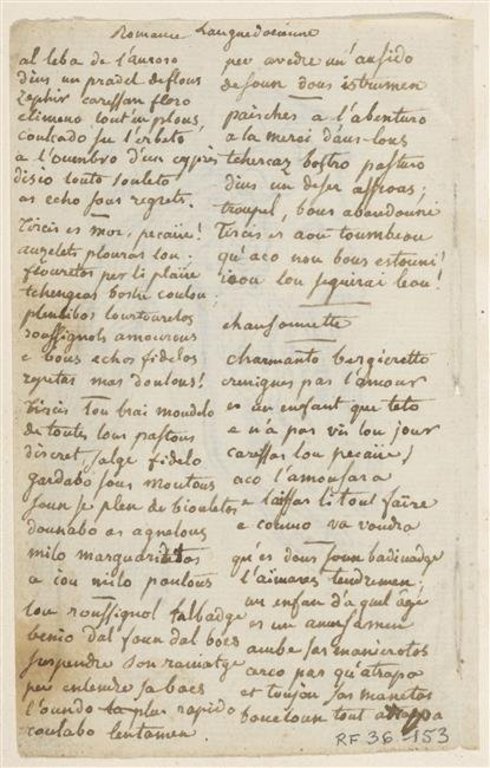 Romance Languedocienne
al leba de l'auroro
dins un pradel de flous
Zephir caressan floro
climeno tout'un plous,
couleado su l'erbeto
a l'oumbro d'un cyprès
disio touto souleto
as echo sous regrets.
Tircis es mor, pecaïre!
auzelets plouras lou;
flouretos per li plaïre
tchengeas bostre coulou;
plentibos tourtouretos
roussignols amourous
e bous echos fidelos
repetas mas doulous!
Tircis lou brai moudelo
de toutes lous pastous
discret, satge fidelo
gardabo sous moutous
soun se plen de biouletos
dounabo as agnelous
milo margaritetos
a iou milo poutous
lou roussignol salbadge
benio dal foun dal boes
suspendre son ramatge
per entendre sa boes
l'oundo la plus rapido
coulabo lentamen.
per avedre un' ausido
de soun dous istrumen
païsches a l'abenturo
a la merci daus lous
tchercaz bostro pasturo
dins un deser affrous;
troupel, bous abandouni
Tircis es aou toumbeou
qu'aco nou bous estouni!
ieou lou seguirai leou!
chansonnette
charmanto bergieretto
cregnigues pas l'amour
es un enfant que teto
e n'a pas vis lou jour
caressas lou pecaïre,
aco l'amousara
e laissas li tout faïre
e coumo va voudra
qu'es dous soun badinadge
l'aimares tendremen;
un enfan d'aquel âge
es un amusamen
ambe sas manierotos
cerco pas qu'atrapa
et toujou sas manetos
boueloun tout attrappa
RF 36-153